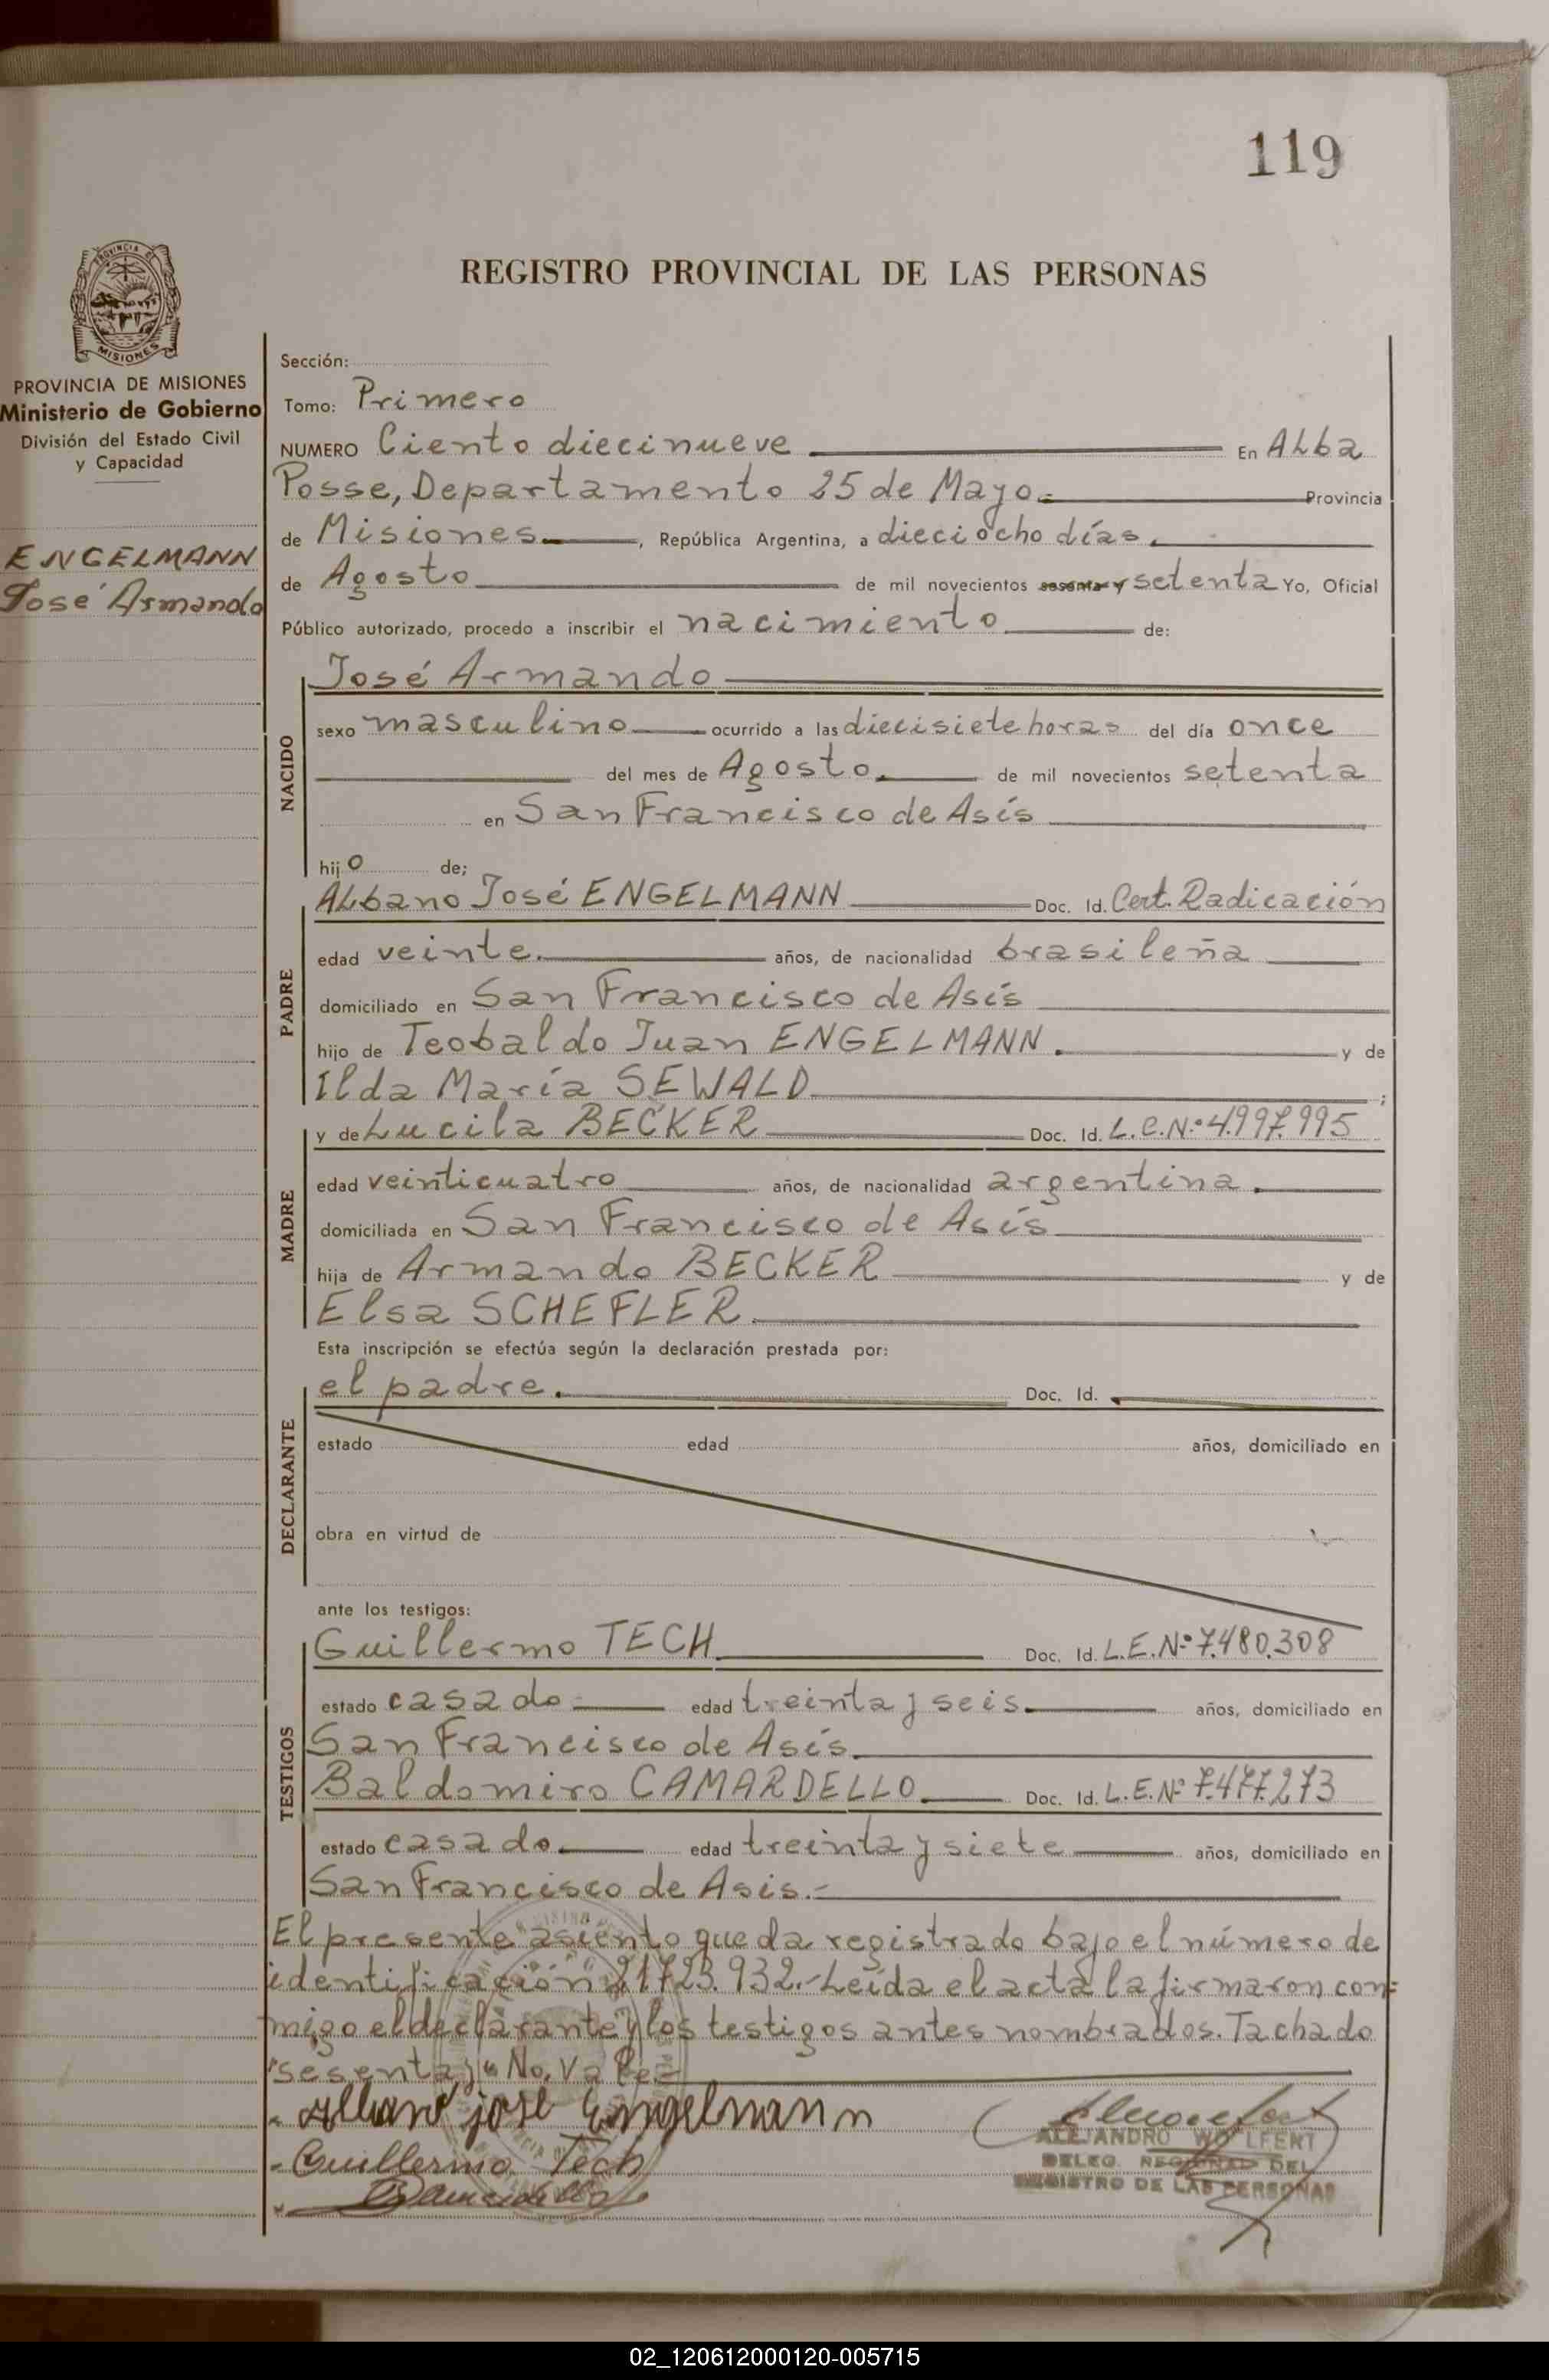 119
PROVINCIA DE MISIONES
PROVINCIA DE MISIONES
Ministerio de Gobierno
División del Estado Civil
y Capacidad
ENGELMANN
José Armando
REGISTRO PROVINCIAL DE LAS PERSONAS
Sección:
Tomo: Primero
NUMERO Ciento diecinueve En Alba
Posse, Departamento 25 de Mayo.- Provincia
de Misiones.-, República Argentina, a dieciocho días.
de Agosto de mil novecientos sesenta y setenta Yo, Oficial
Público autorizado, procedo a inscribir el nacimiento de:
José Armando
NACIDO
sexo masculino ocurrido a las diecisiete horas del día once
del mes de Agosto. de mil novecientos setenta
en San Francisco de Asís
hijo de;
PADRE
Albano José ENGELMANN Doc. Id. Cert. Radicación
edad veinte. años, de nacionalidad brasileña
domiciliado en San Francisco de Asís
hijo de Teobaldo Juan ENGELMANN. y de
Ilda María SEWALD ;
MADRE
y de Lucila BECKER Doc. Id. L.C.Nº 4.997.995
edad veinticuatro años, de nacionalidad argentina.
domiciliada en San Francisco de Asís
hija de Armando BECKER y de
Elsa SCHEFLER.
Esta inscripción se efectúa según la declaración prestada por:
DECLARANTE
el padre. Doc. Id.
estado edad años, domiciliado en
obra en virtud de
ante los testigos:
TESTIGOS
Guillermo TECH Doc. Id. L.E.Nº 7.480.308
estado casado edad treinta y seis. años, domiciliado en
San Francisco de Asís.
Baldomiro CAMARDELLO. Doc. Id. L.E.Nº 7.477.273
estado casado. edad treinta y siete años, domiciliado en
San Francisco de Asis.-
El presente asiento queda registrado bajo el número de
identificación 21.723.932.- Leída el acta la firmaron con=
migo el declarante y los testigos antes nombrados. Tachado
"sesenta y" No, Vale.-
Albano josé Engelmann
Guillermo Tech
ALEJANDRO WOLFERT
DELEG. REGIONAL DEL
REGISTRO DE LAS PERSONAS
02_120612000120-005715